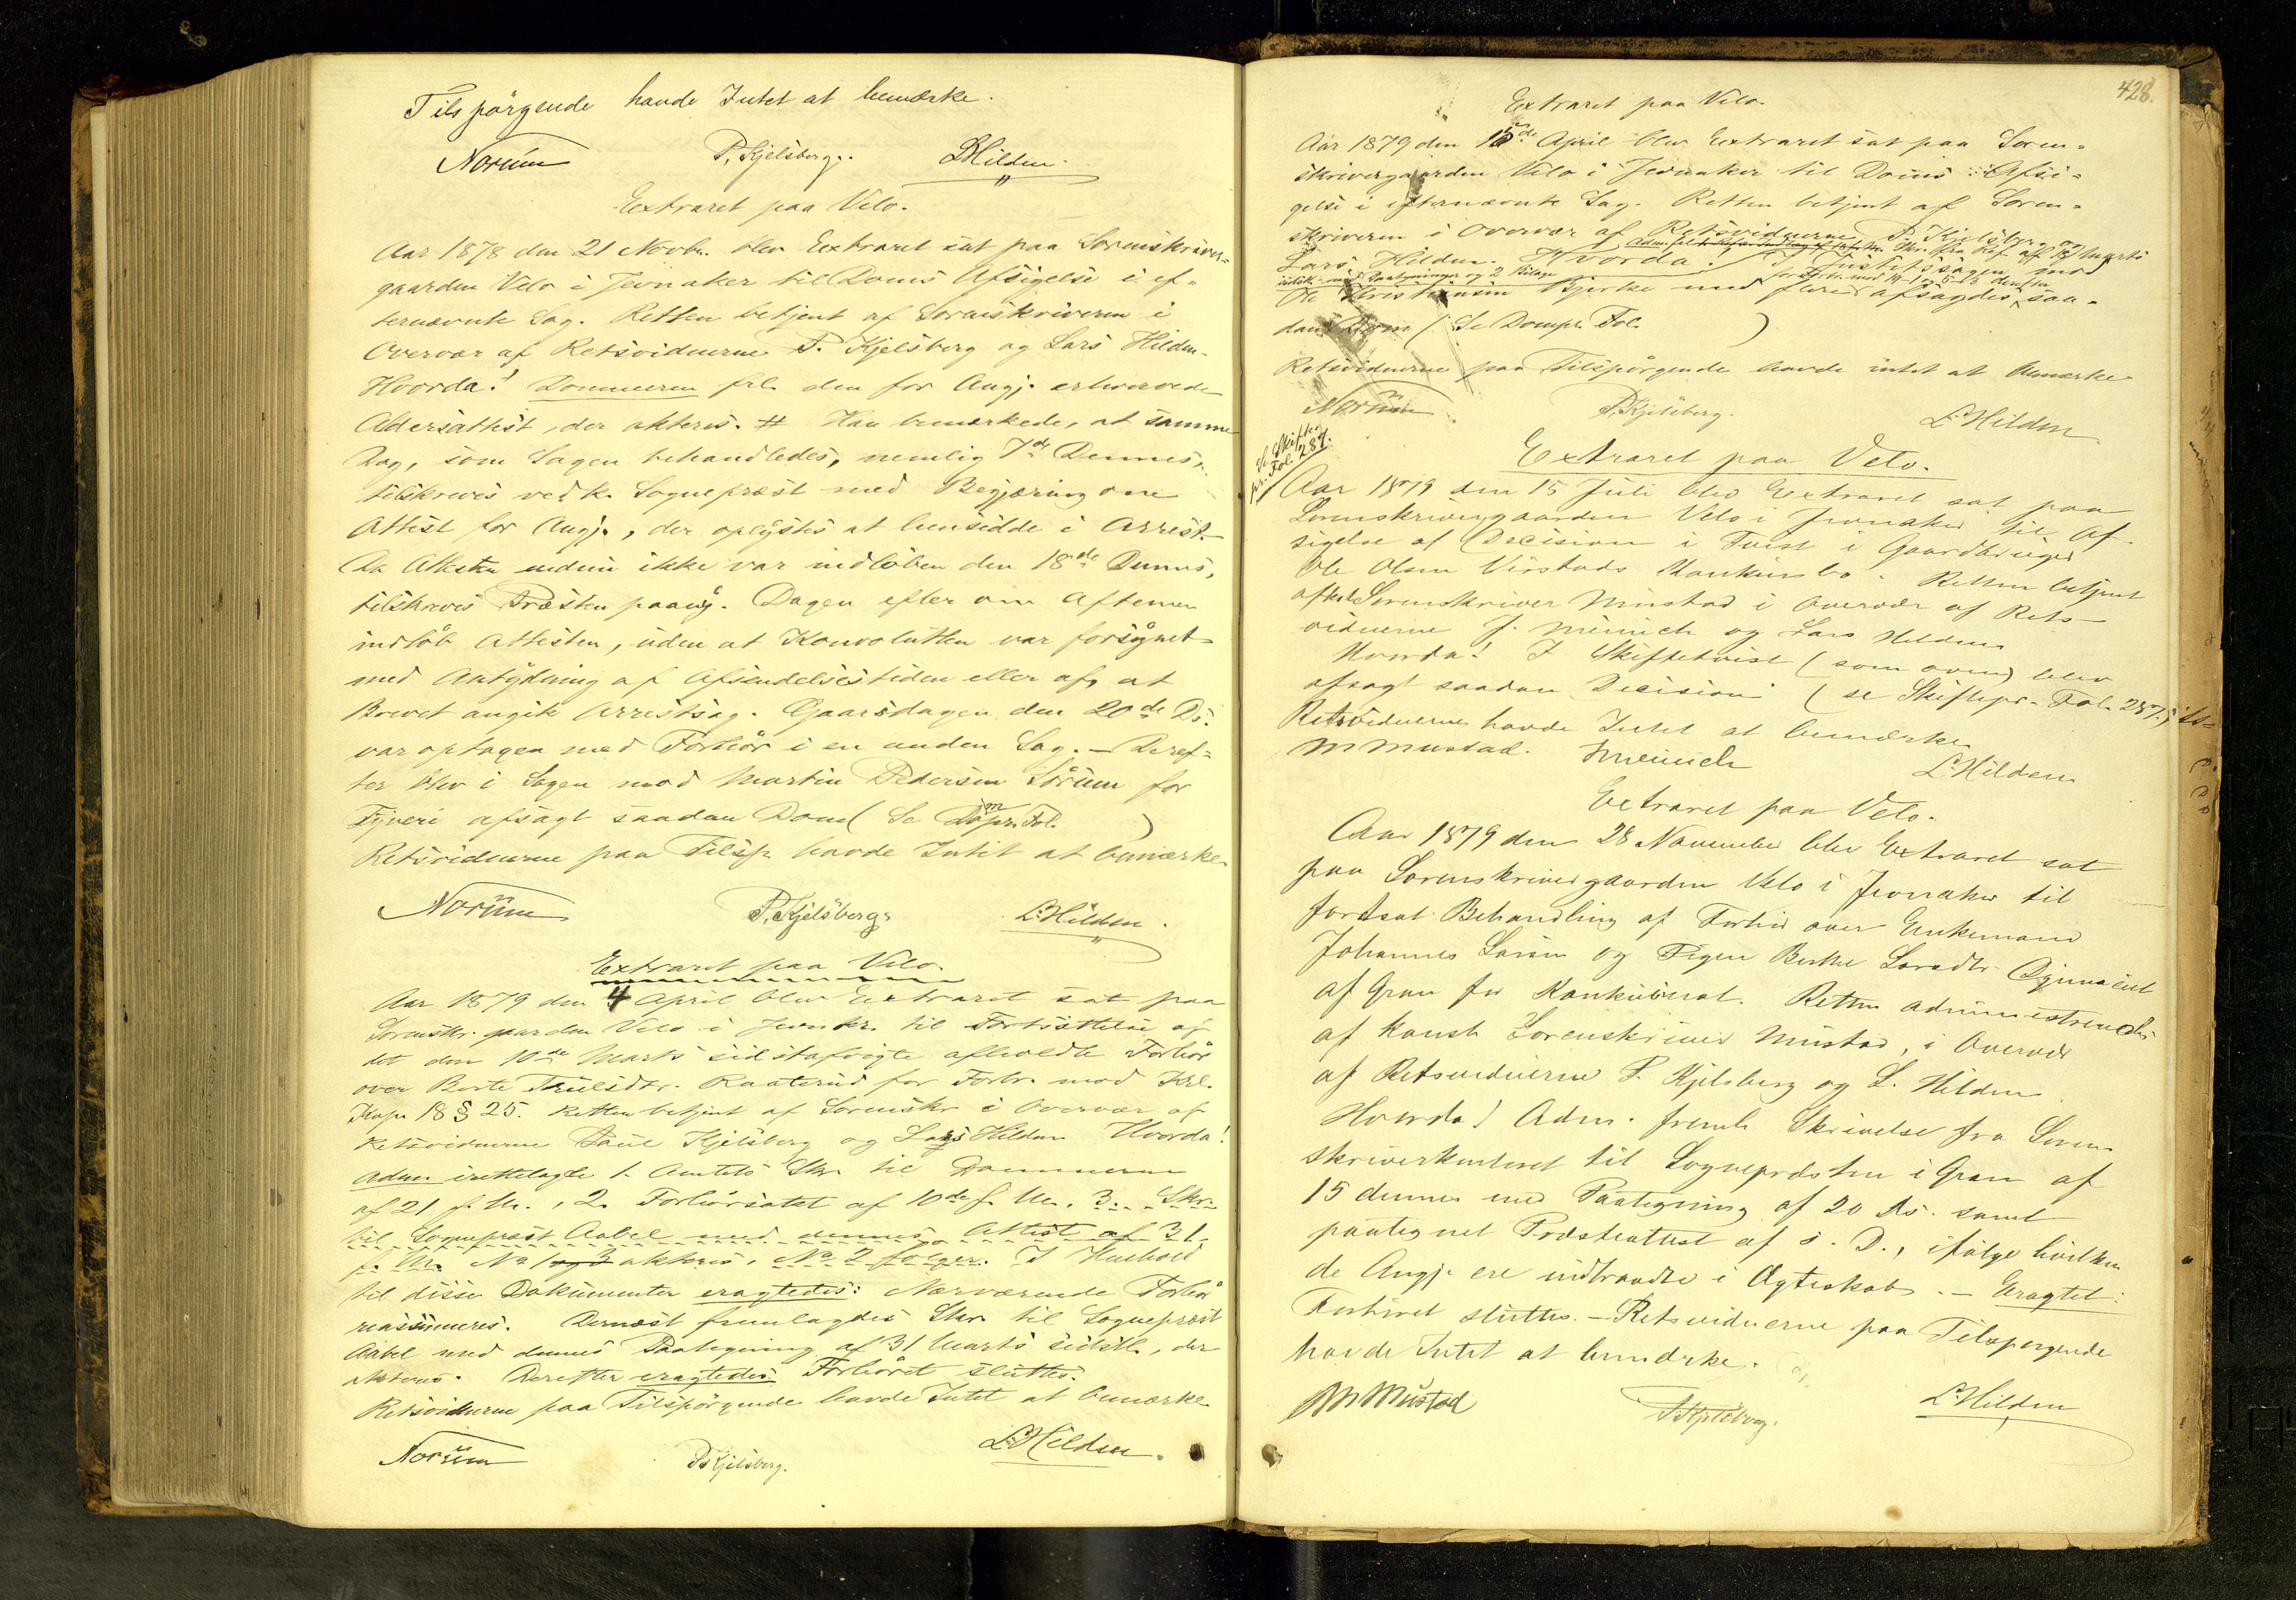 Tilspörgende havde Intet at bemærke.
Norum P. Kjelsberg. L Hilden.
Extraret paa Velo.
Aar 1878 den 21 Novbr. blev Extraret sat paa Sorenskriver-
gaarden Velo i Jevnaker til Doms Afsigelse i ef-
ternævnte Sag. Retten betjent af Sorenskriveren i
Overvær af Retsvidnerne P. Kjelsberg og Lars Hilden.
Hvorda! Dommeren frl. den for Angj. erhvervede
Aldersattest, der akteres. # Han bemærkede, at samme
Dag, som Sagen behandledes, nemlig 7de Dennes,
tilskreves vedk. Sogneprest med Begjæring om
Attest for Angj., der oplystes at hensidde i Arrest.
Da Attesten endnu ikke var indlöben den 18de Dennes,
tilskreves Præsten paany. Dagen efter om Aftenen
indlöb Attesten, uden at Konvolutten var forsynet
med Antydning af Afsendelsestiden eller af, at
Brevet angik Arrestsag. Gaarsdagen den 20de Ds.
var optagen med Forhör i en anden Sag. – Deref-
ter blev i Sagen mod Martin Pedersen Sörum for
Tyveri afsagt saadan Dom ( Se Dompr. Fol. )
Retsvidnerne paa Tilsp. havde Intet at bemærke.
Norum P. Kjelsberg L. Hilden.
Extraret paa Velo.
Aar 1879 den 4 April blev Extraret sat paa
Sorenskr. gaarden Velo i Jevnkr. til Fortsættelse af
det den 10de Marts sidst afvigte afholdte Forhör
over Berte Trulsdtr. Raaterud for Forbr. mod Krl.
Kap. 18 § 25. Retten betjent af Sorenskr. i Overvær af
Retsvidnerne Paul Kjelsberg og Lars Hilden Hvorda!
Adm. irettelagte 1. Amtets Skr. til Dommeren
af 21 f. M., 2. Forhörsaktet af 10de f. M., 3. Skr.
til Sogneprest Aabel med dennes Attest af 31
f. M. No 1 og 3 akteres, No 2 fölger. I Henhold
til disse Dokumenter eragtedes: Nærværende Forhör
reassumeres. Dernæst fremlagdes Skr. til Sogneprest
Aabel med dennes Paategning af 31 Marts sidstl., der
akteres. Derefter eragtedes: Forhöret sluttes.
Retsvidnerne paa Tilspörgende havde Intet at bemærke.
Norum P Kjelsberg. L. Hilden.
428.
Extraret paa Velo.
Aar 1879 den 15de April blev Extraret sat paa Soren-
skrivergaarden Velo i Jevnaker til Doms Afsi-
gelse i efternævnte Sag. Retten betjent af Soren-
skriveren i Overvær af Retsvidnerne P. Kjelsbr. og
Lars Hilden. Hvorda! I Justitssagen mod
Ole Christiansen Bjerke med flere afsagdes saa-
dan Dom ( Se Dompr. Fol. )
Retsvidnerne paa Tilspörgende havde intet at bemærke
Norum P. Kjelsberg. L. Hilden
Se Skifte-
pr. Fol. 287.
Extraret paa Velo.
Aar 1879 den 15 Juli blev Extraret sat paa
Sorenskrivergaarden Velo i Jevnaker til Af-
sigelse af Decision i Tvist i Gaardbruger
Ole Olsen Virstads Konkursbo. Retten betjent
af kst. Sorenskriver Mustad i Overvær af Rets-
vidnerne J. Meinich og Lars Hilden
Hvorda! I Skiftetvist (som oven) blev
afsagt saadan Decision (se Skiftepr. Fol. 287.)
Retsvidnerne havde Intet at bemærke
M Mustad. J Meinich L. Hilden
Extraret paa Velo.
Aar 1879 den 28 November blev Extraret sat
paa Sorenskrivergaarden Velo i Jevnaker til
fortsat Behandling af Forhör over Enkemand
Johannes Larsen og Pigen Berthe Larsdtr.
af Gran for Konkubinat. Retten administreredes
af konst. Sorenskriver Mustad, i Overvær
af Retsvidnerne P. Kjelsberg og L. Hilden
Hvorda! Adm. freml. Skrivelse fra Soren-
skriverkontoret til Sognepræsten i Gran af
15 dennes med Paategning af 20 ds. samt
paategnet Præsteattest af s. D., ifölge hvilken
de Angj. ere indtraadte i Ægteskab. – Eragtet:
Forhöret sluttes. – Retsvidnerne paa Tilspørgende
havde Intet at bemærke.
M Mustad P Kjelsberg. L. Hilden